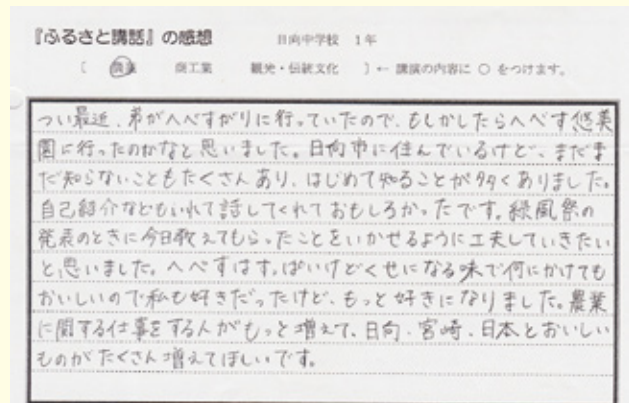 『ふるさと講話』の感想 日向中学校 1年
〔 農業 商工業 観光・伝統文化 〕← 講演の内容に ○ をつけます。
つい最近、弟がへべすがりに行っていたので、もしかしたらへべす悠美
園に行ったのかなと思いました。日向市に住んでいるけど、まだま
だ知らないこともたくさんあり、はじめて知ることが多くありました。
自己紹介などもいれて話してくれておもしろかったです。緑風祭の
発表のときに今日教えてもらったことをいかせるように工夫していきたい
と思いました。へべすはすっぱいけどくせになる味で何にかけても
おいしいので私も好きだったけど、もっと好きになりました。農業
に関する仕事をする人がもっと増えて、日向・宮崎・日本とおいしい
ものがたくさん増えてほしいです。